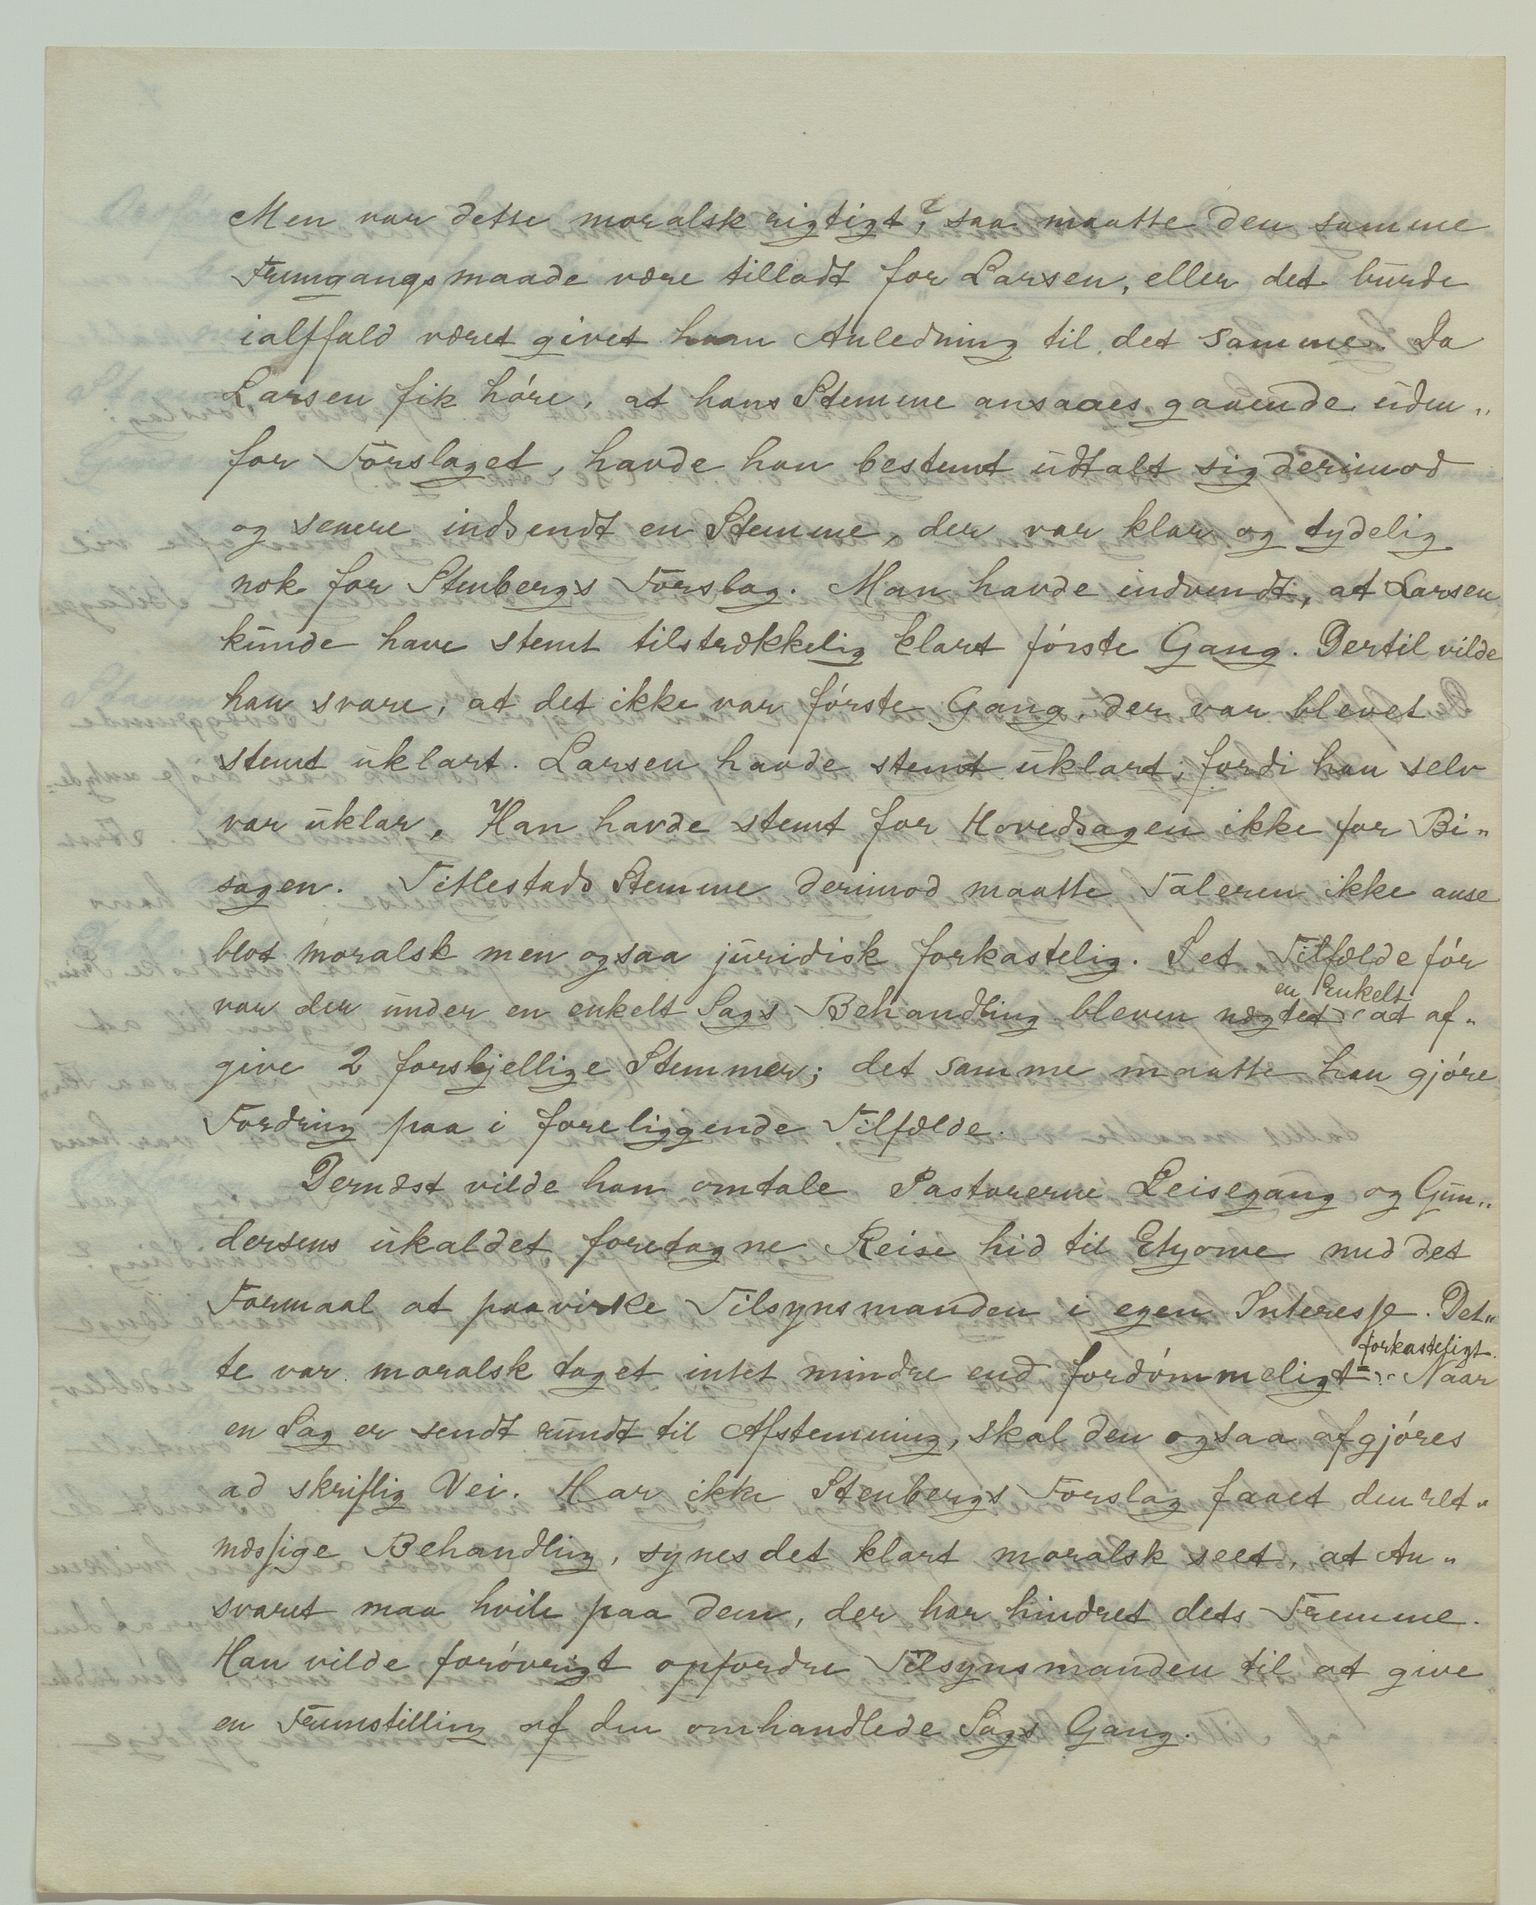 Men var dette moralsk rigtigt?, saa maatte den samme
Fremgangsmaade være tilladt for Larsen, eller det burde
ialffald været givet ham Anledning til det samme. Da
Larsen fik høre, at hans Stemme ansaaes gaaende uden„
for Forslaget, havde han bestemt udtalt sig derimod
og senere indsendt en Stemme, der var klar og tydelig
nok for Stenbergs Forslag. Man havde indvendt, at Larsen
kunde have stemt tilstrækkelig klart første Gang. Dertil vilde
han svare, at det ikke var første Gang, der var blevet
stemt uklart. Larsen havde stemt uklart, fordi han selv
var uklar. Han havde stemt for Hovedsagen ikke for Bi„
sagen. Titlestads Stemme derimod maatte Taleren ikke anse
blot moralsk men ogsaa juridisk forkastelig. I et Tilfælde før
var der under en enkelt Sags Behandling bleven nægtet en Enkelt at af„
give 2 forskjellige Stemmer; det samme maatte han gjøre
Fordring paa i foreliggende Tilfælde.
Dernæst vilde han omtale Pastorerne Leisegang og Gun„
dersens ukaldet foretagne Reise hid til Etyowe med det
Formaal at paavirke Tilsynsmanden i egen Interesse. Det„
te var moralsk taget intet mindre end fordømmeligt = forkasteligt. Naar
en Sag er sendt rundt til Afstemning, skal den ogsaa afgjøres
ad skriftlig Vei. Har ikke Stenbergs Forslag faaet den ret„
mæssige Behandling, synes det klart moralsk seet, at An„
svaret maa hvile paa dem, der har hindret dets Fremme.
Han vilde forøvrigt opfordre Tilsynsmanden til at give
en Fremstilling af den omhandlede Sags Gang.